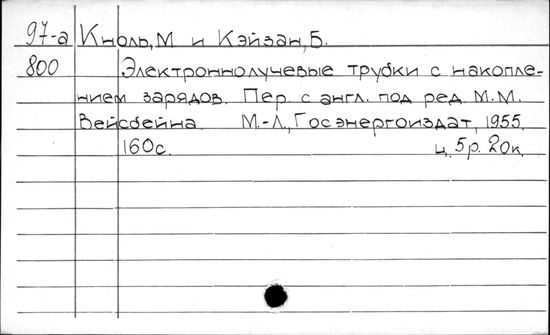 97-а Кноль, М и Кэйзан, Б.
800 Электроннолучевые трубки с накопле-
нием зарядов. Пер. с англ. под ред. М.М.
Вейсбейна М.-Л., Госэнергоиздат, 1955.
160с. ц. 5р. 20к